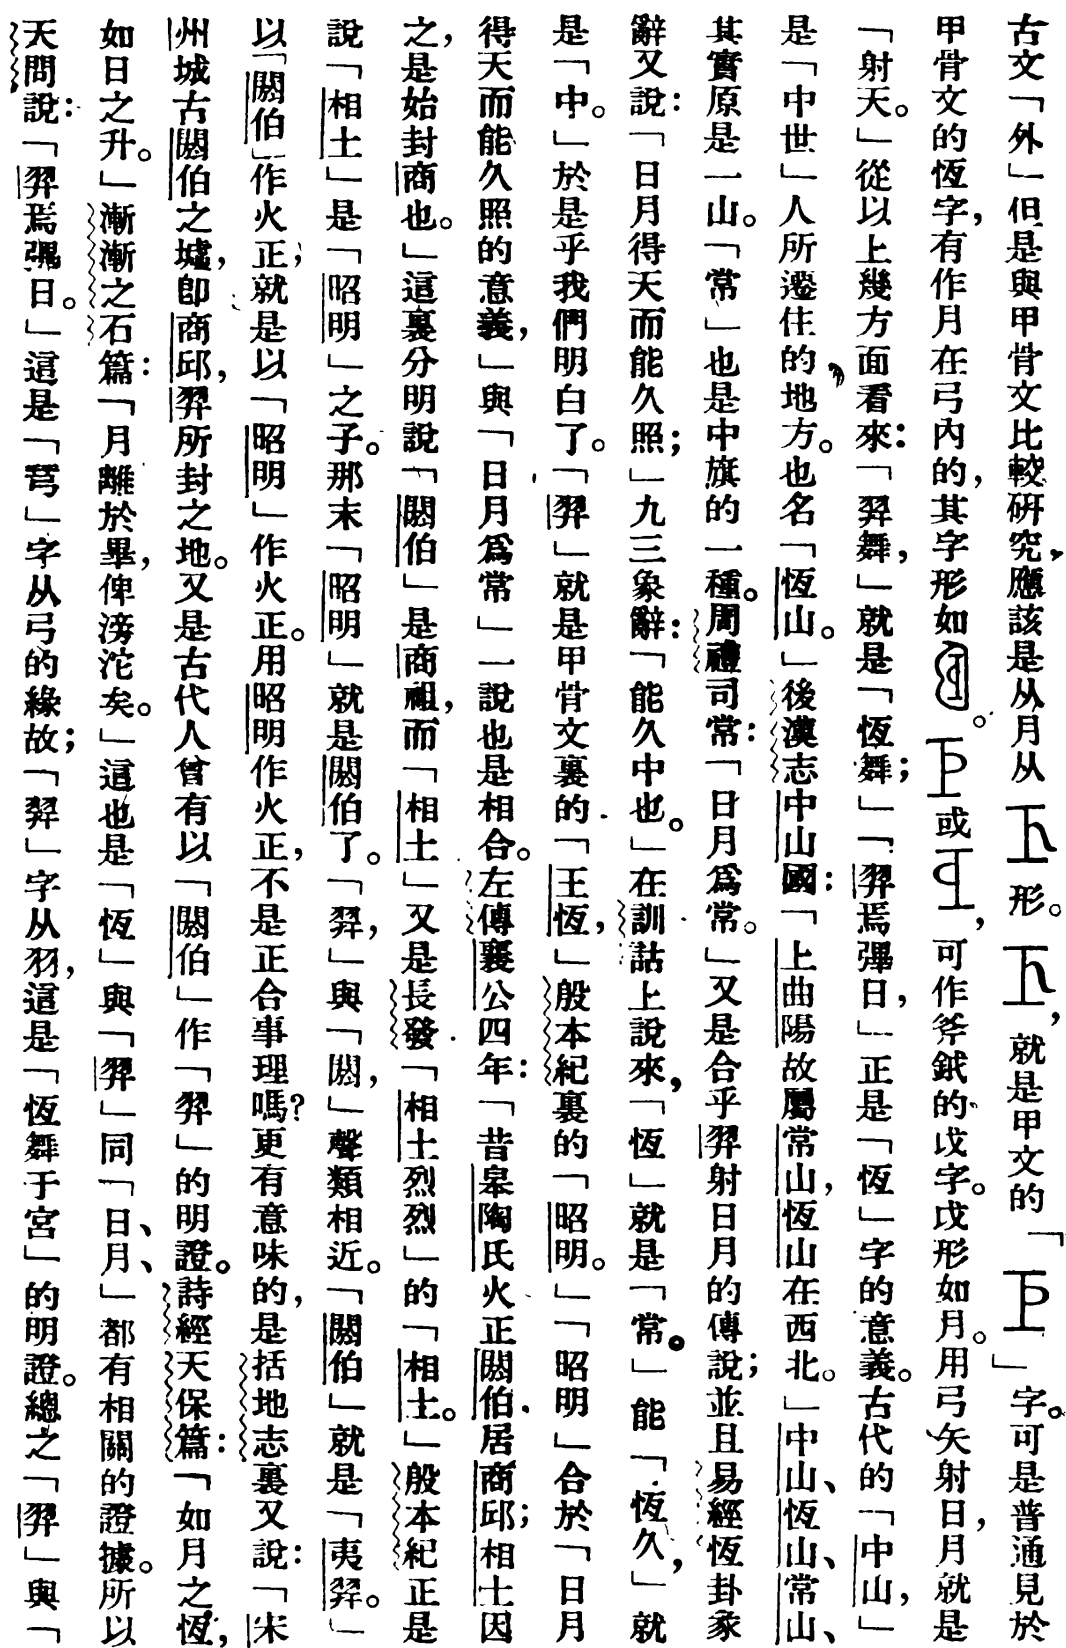 古文「外」但是與甲骨文比較研究，應該是从月从形。就是甲文的「」字。可是普通見於
甲骨文的恆字，有作月在弓內的，其字形如。或，可作斧鉞的戉字。戉形如月。用弓矢射日，月就是
「射天。」從以上幾方面看來：「羿舞，」就是「恆舞；」「羿焉彃日，」正是「恆」字的意義。古代的「中山，」
是「中世」人所遷住的地方。也名「恆山。」後漢志中山國：「上曲陽故屬常山，恆山在西北。」中山、恆山、常山、
其實原是一山。「常」也是中旗的一種。周禮司常：「日月爲常。」又是合乎羿射日月的傳說；並且易經恆卦彖
辭又說：「日月得天而能久照；」九三象辭：「能久中也。」在訓詁上說來，「恆」就是「常。」能「恆久，」就
是「中。」於是乎我們明白了。「羿」就是甲骨文裏的「王恆，」般本紀裏的「昭明。」「昭明」合於「日月
得天而能久照的意義，」與「日月爲常」一說也是相合。左傳襄公四年：「昔皋陶氏火正閼伯居商邱；相土因
之，是始封商也。」這裏分明說「閼伯」是商祖，而「相土」又是長發「相土烈烈」的「相土。」般本紀正是
說「相土」是「昭明」之子。那末「昭明」就是閼伯了。「羿，」與「閼，」聲類相近。「閼伯」就是「夷羿。」
以「閼伯」作火正，就是以「昭明」作火正。用昭明作火正，不是正合事理嗎？更有意味的，是括地志裏又說：「宋
州城古閼伯之墟，卽商邱，羿所封之地。又是古代人曾有以「閼伯」作「羿」的明證。詩經天保篇：「如月之恆，
如日之升。」漸漸之石篇：「月離於畢，俾滂沱矣。」這也是「恆」與「羿」同「日、月、」都有相關的證據。所以
天問說：「羿焉彃日。」這是「弮」字从弓的緣故；「羿」字从羽，這是「恆舞于宮」的明證。總之「羿」與「